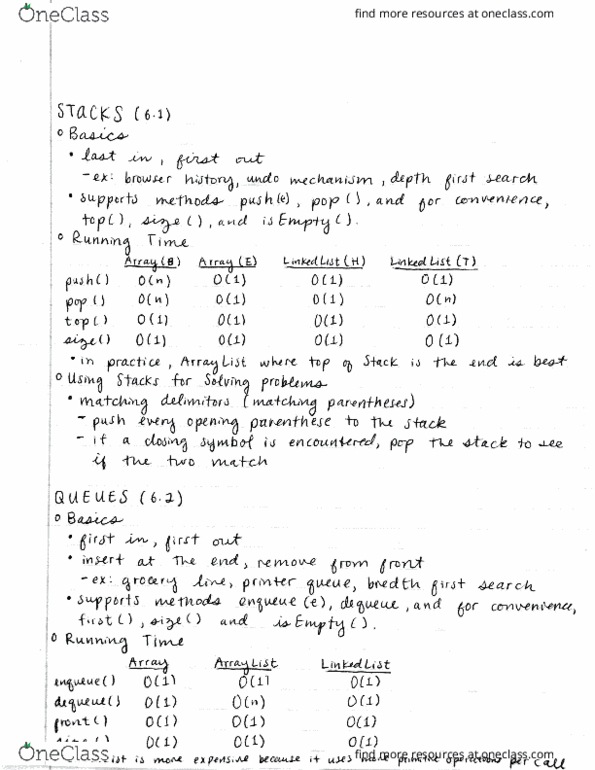 OneClass
find more resources at oneclass.com
STACKS (6.1)
Basics
• last in, first out
- ex: browser history, undo mechanism, depth first search
• supports methods push(e), pop(), and for convenience,
top(), size(), and isEmpty().
Running Time
Array(B) Array(E) LinkedList(H) LinkedList(T)
push() O(n) O(1) O(1) O(1)
pop() O(n) O(1) O(1) O(n)
top() O(1) O(1) O(1) O(1)
size() O(1) O(1) O(1) O(1)
• in practice, ArrayList where top of Stack is the end is best
Using Stacks for Solving problems
• matching delimitors (matching parentheses)
- push every opening parenthese to the stack
- if a closing symbol is encountered, pop the stack to see
if the two match
QUEUES (6.2)
Basics
• first in, first out
• insert at the end, remove from front
- ex: grocery line, printer queue, bredth first search
• supports methods enqueue(e), dequeue, and for convenience,
first(), size() and isEmpty().
Running Time
Array ArrayList LinkedList
enqueue() O(1) O(1) O(1)
dequeue() O(1) O(n) O(1)
front() O(1) O(1) O(1)
O(1) O(1) O(1)
is more expensive because it uses more primitive operations per call
OneClass
find more resources at oneclass.com